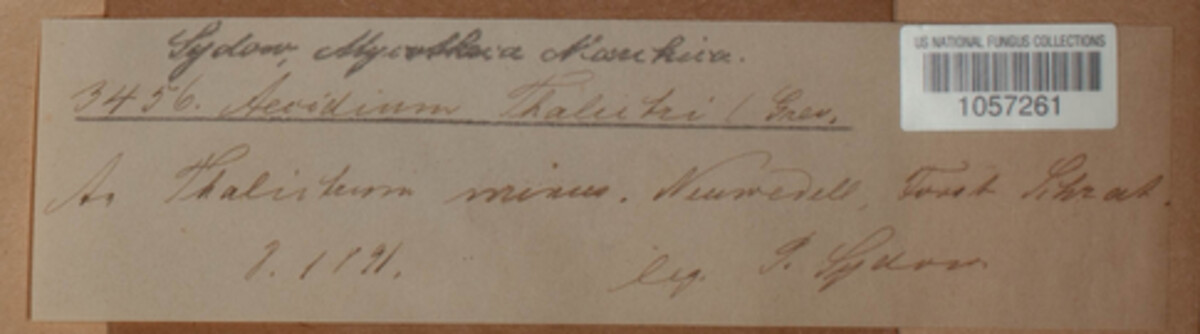 Sydow, Mycotheca Marchica.
US NATIONAL FUNGUS COLLECTIONS
1057261
3456. Aecidium Thalictri (Grev.
An Thalictrum minus. Neuwedell, Forst Schrat.
1891.
leg. P. Sydow